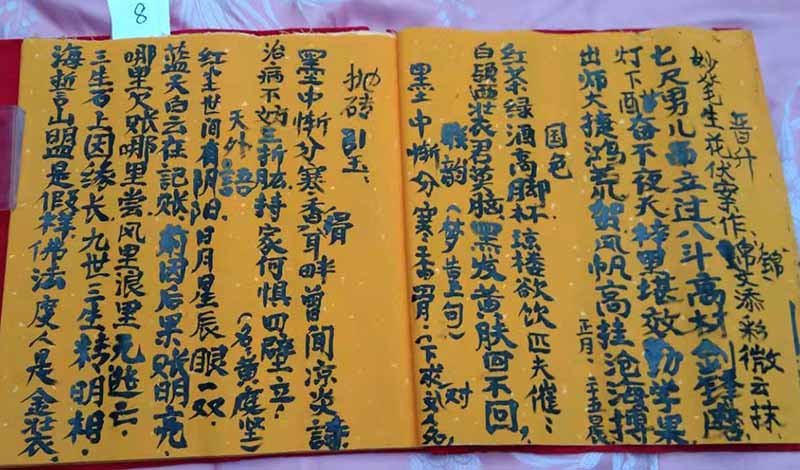 8
晋升
妙笔生花伏案作,锦文添彩微云抹
七尺男儿而立过八斗高材金锋磨
灯下奋不夜天持里堪效勤学果
出师大捷鸿荒贺风帆高挂沧海搏
正月二十五晨
国色
红茶绿酒高脚杯琼楼欲饮匹夫催
白领西装君莫脑黑发黄肤回不回
韵(梦董句)对
黑尘中惭分寒香骨(下求
抛砖引玉:
骨
黑尘中惭分寒香耳畔曾闻凉炎诗
治病不妨三折肱持家何惧四壁立
(名黄庭坚)
天外語
红尘世间有阴阳日月星辰眼一双
蓝天白云在记账前因后果账明亮
哪里欠账哪里尝风里浪里无逃亡
三生石上因缘长九世三生精明相
海誓山盟是假样佛法度人是金装